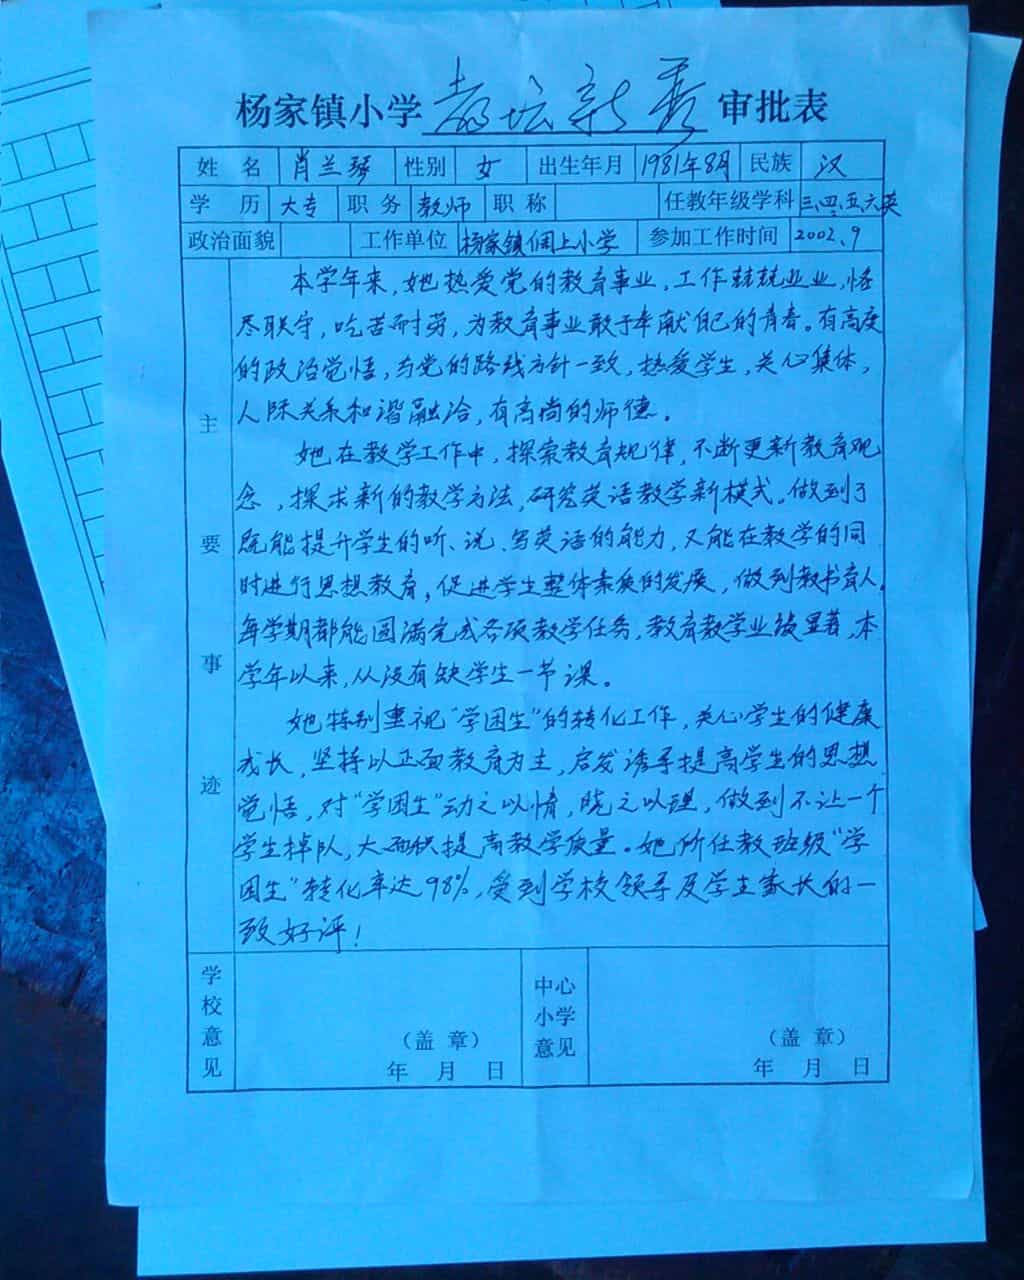 杨家镇小学教坛新秀审批表
姓 名 肖兰琴 性别 女 出生年月 1981年8月 民族 汉
学 历 大专 职 务 教师 职 称 任教年级学科 三、四、五、六英
政治面貌 工作单位 杨家镇上小学 参加工作时间 2002.9
主要事迹
本学年来，她热爱党的教育事业，工作兢兢业业，恪
尽职守，吃苦耐劳，为教育事业敢于奉献自己的青春。有高度
的政治觉悟，与党的路线方针一致，热爱学生，关心集体，
人际关系和谐融洽，有高尚的师德。
她在教学工作中，探索教育规律，不断更新教育观
念，探求新的教学方法，研究英语教学新模式。做到了
既能提升学生的听、说、写英语的能力，又能在教学的同
时进行思想教育，促进学生整体素质的发展，做到教书育人，
每学期都能圆满完成各项教学任务，教育教学业绩显著，本
学年以来，从没有缺学生一节课。
她特别重视“学困生”的转化工作，关心学生的健康
成长，坚持以正面教育为主，启发诱导提高学生的思想
觉悟，对“学困生”动之以情，晓之以理，做到不让一个
学生掉队，大面积提高教学质量。她所任教班级“学
困生”转化率达98%，受到学校领导及学生家长的一
致好评！
学校意见
（盖 章）
年 月 日
中心小学意见
（盖 章）
年 月 日